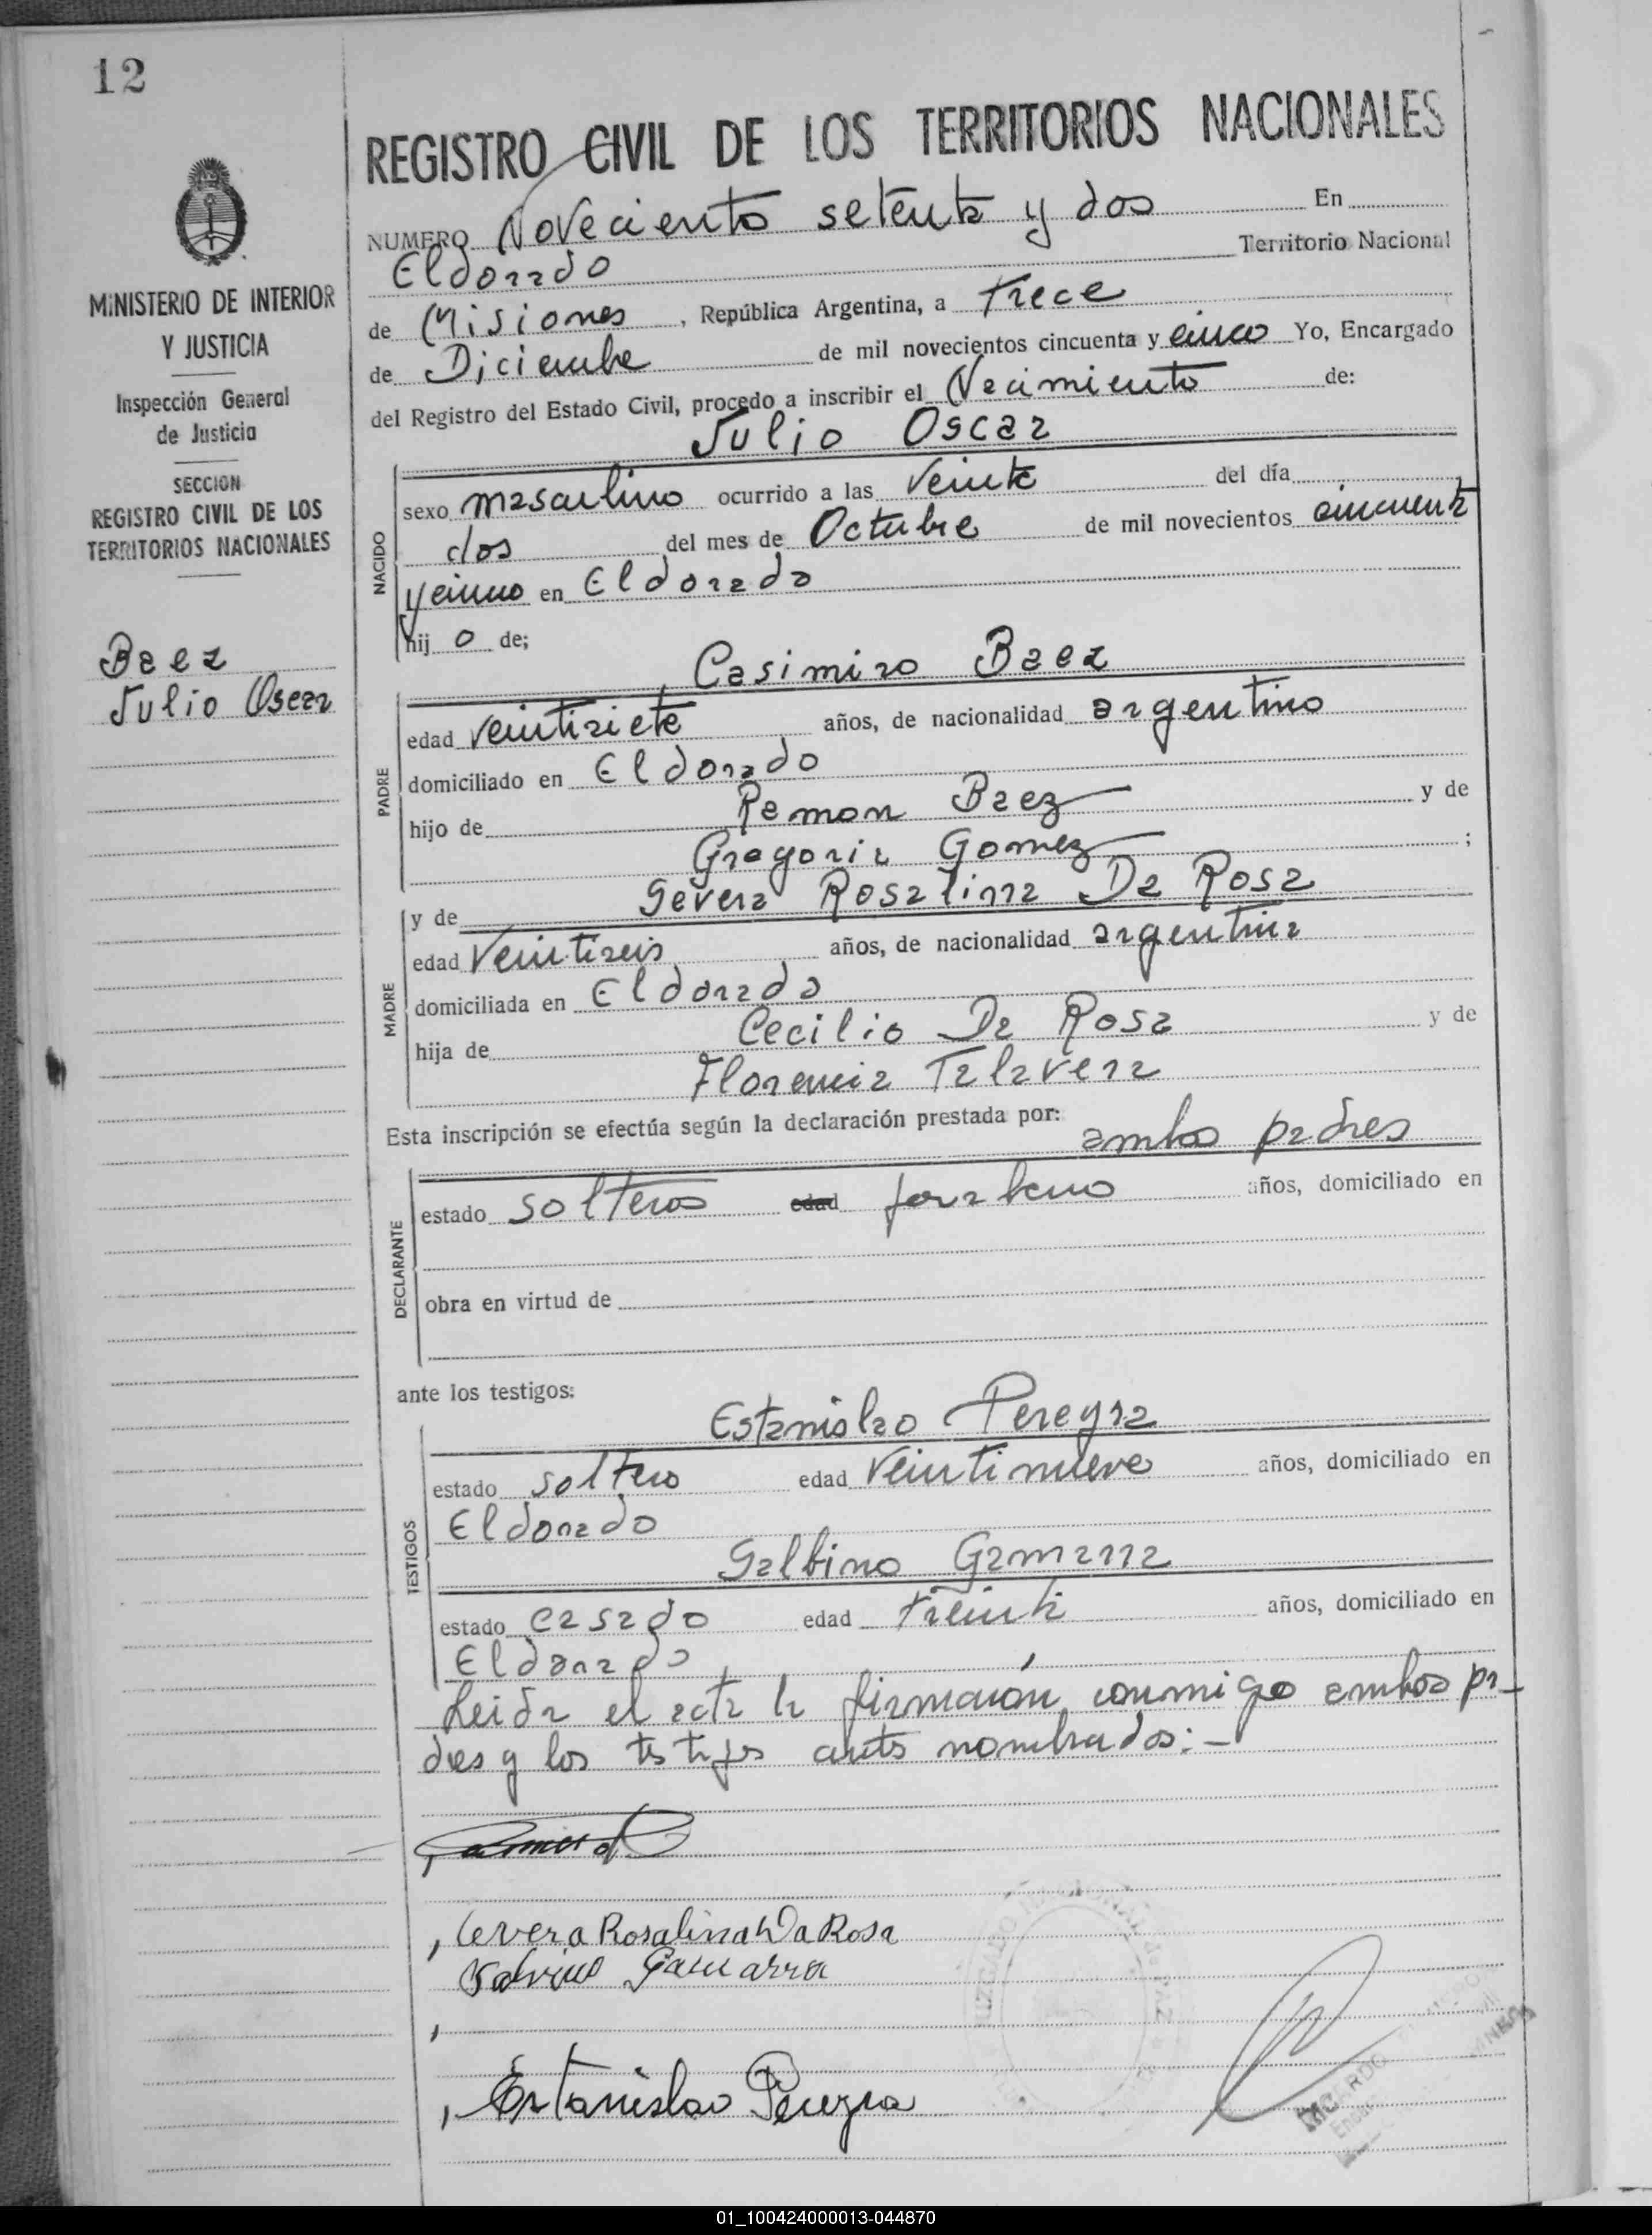 12
MINISTERIO DE INTERIOR
Y JUSTICIA
Inspección General
de Justicia
SECCION
REGISTRO CIVIL DE LOS
TERRITORIOS NACIONALES
Baez
Julio Oscar
REGISTRO CIVIL DE LOS TERRITORIOS NACIONALES
NUMERO Noveciento setenta y dos En
Eldorado Territorio Nacional
de Misiones, República Argentina, a trece
de Diciembre de mil novecientos cincuenta y cinco Yo, Encargado
del Registro del Estado Civil, procedo a inscribir el Nacimiento de:
Julio Oscar
NACIDO
sexo masculino ocurrido a las veinte del día
dos del mes de Octubre de mil novecientos cincuenta
y cinco en Eldorado
hij o de;
Casimiro Baez
PADRE
edad veintisiete años, de nacionalidad argentino
domiciliado en Eldorado
hijo de Ramon Baez y de
Gregoria Gomez ;
y de Severa Rosalina Da Rosa
MADRE
edad Veintiseis años, de nacionalidad argentina
domiciliada en Eldorado
hija de Cecilio Da Rosa y de
Florencia Talavera
Esta inscripción se efectúa según la declaración prestada por: ambos padres
DECLARANTE
estado solteros edad años, domiciliado en
obra en virtud de
ante los testigos:
Estanislao Pereyra
TESTIGOS
estado soltero edad veintinueve años, domiciliado en
Eldorado
Galbino Gamarra
estado casado edad treinta años, domiciliado en
Eldorado
Leida el acta la firmaron conmigo ambos pa-
dres y los testigos antes nombrados:-
Severa Rosalina Da Rosa
Gamarra
Estanislao Pereyra
RICARDO
01_100424000013-044870